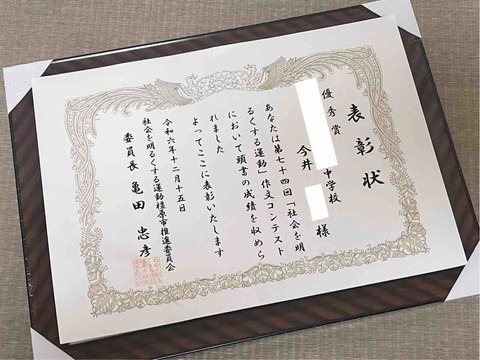 表彰状
優秀賞
中学校
今井 様
あなたは第七十四回「社会を明
るくする運動」作文コンテスト
において頭書の成績を収めら
れました
よってここに表彰いたします
令和六年十二月十五日
社会を明るくする運動橿原市推進委員会
委員長 亀田忠彦